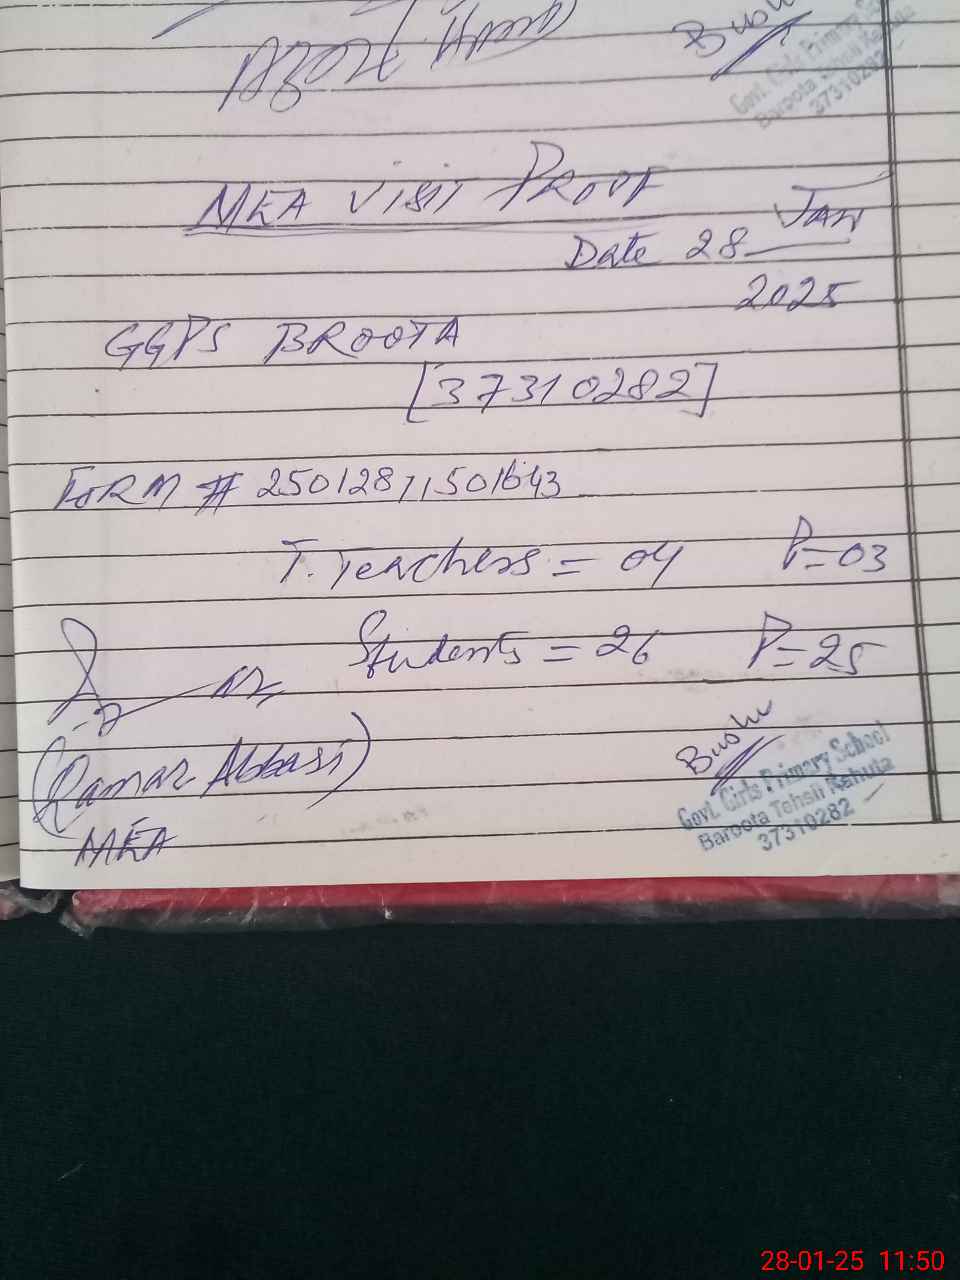 Bush
Govt. Girls Primary School
Baroota Tehsil Kahuta
37310282
MEA VISIT PROOF
Date 28 JAN
2025
GGPS BROOTA
[37310282]
FORM # 25012811501643
T. Teachers = 04 P=03
Students = 26 P=25
(Qamar Abbasi)
MEA
Bush
Govt. Girls Primary School
Baroota Tehsil Kahuta
37310282
28-01-25 11:50